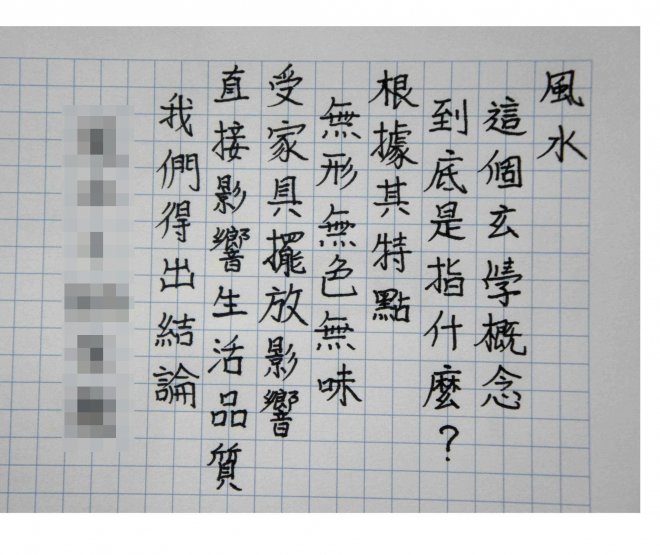 風水
這個玄學概念
到底是指什麼？
根據其特點
無形無色無味
受家具擺放影響
直接影響生活品質
我們得出結論